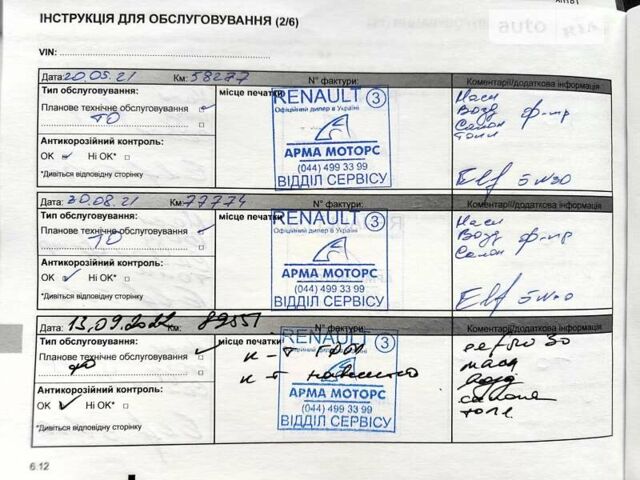 ІНСТРУКЦІЯ ДЛЯ ОБСЛУГОВУВАННЯ (2/6)
VIN:
Дата: 20.05.21 Км: 58277 N° фактури: Коментарії/додаткова інформація
Тип обслуговування: місце печатки
Планове технічне обслуговування
ТО
Антикорозійний контроль:
OK Ні OK*
*Дивіться відповідну сторінку
RENAULT 3
Офіційний дилер в Україні
АРМА МОТОРС
(044) 499 33 99
ВІДДІЛ СЕРВІСУ
Масл
Возд ф-тр
Салон
Топл
Elf 5w30
Дата: 30.08.21 Км: 77774 N° фактури: Коментарії/додаткова інформація
Тип обслуговування: місце печатки
Планове технічне обслуговування
ТО
Антикорозійний контроль:
OK Ні OK*
*Дивіться відповідну сторінку
RENAULT 3
Офіційний дилер в Україні
АРМА МОТОРС
(044) 499 33 99
ВІДДІЛ СЕРВІСУ
Масл
Возд ф-тр
Салон
Elf
Дата: 13.09.2022 Км: N° фактури: Коментарії/додаткова інформація
Тип обслуговування: місце печатки
Планове технічне обслуговування
ТО
Антикорозійний контроль:
OK Ні OK*
*Дивіться відповідну сторінку
RENAULT 3
к-т ГРМ
к-т навісного
АРМА МОТОРС
(044) 499 33 99
ВІДДІЛ СЕРВІСУ
30
масл
возд
салон
топл
6.12